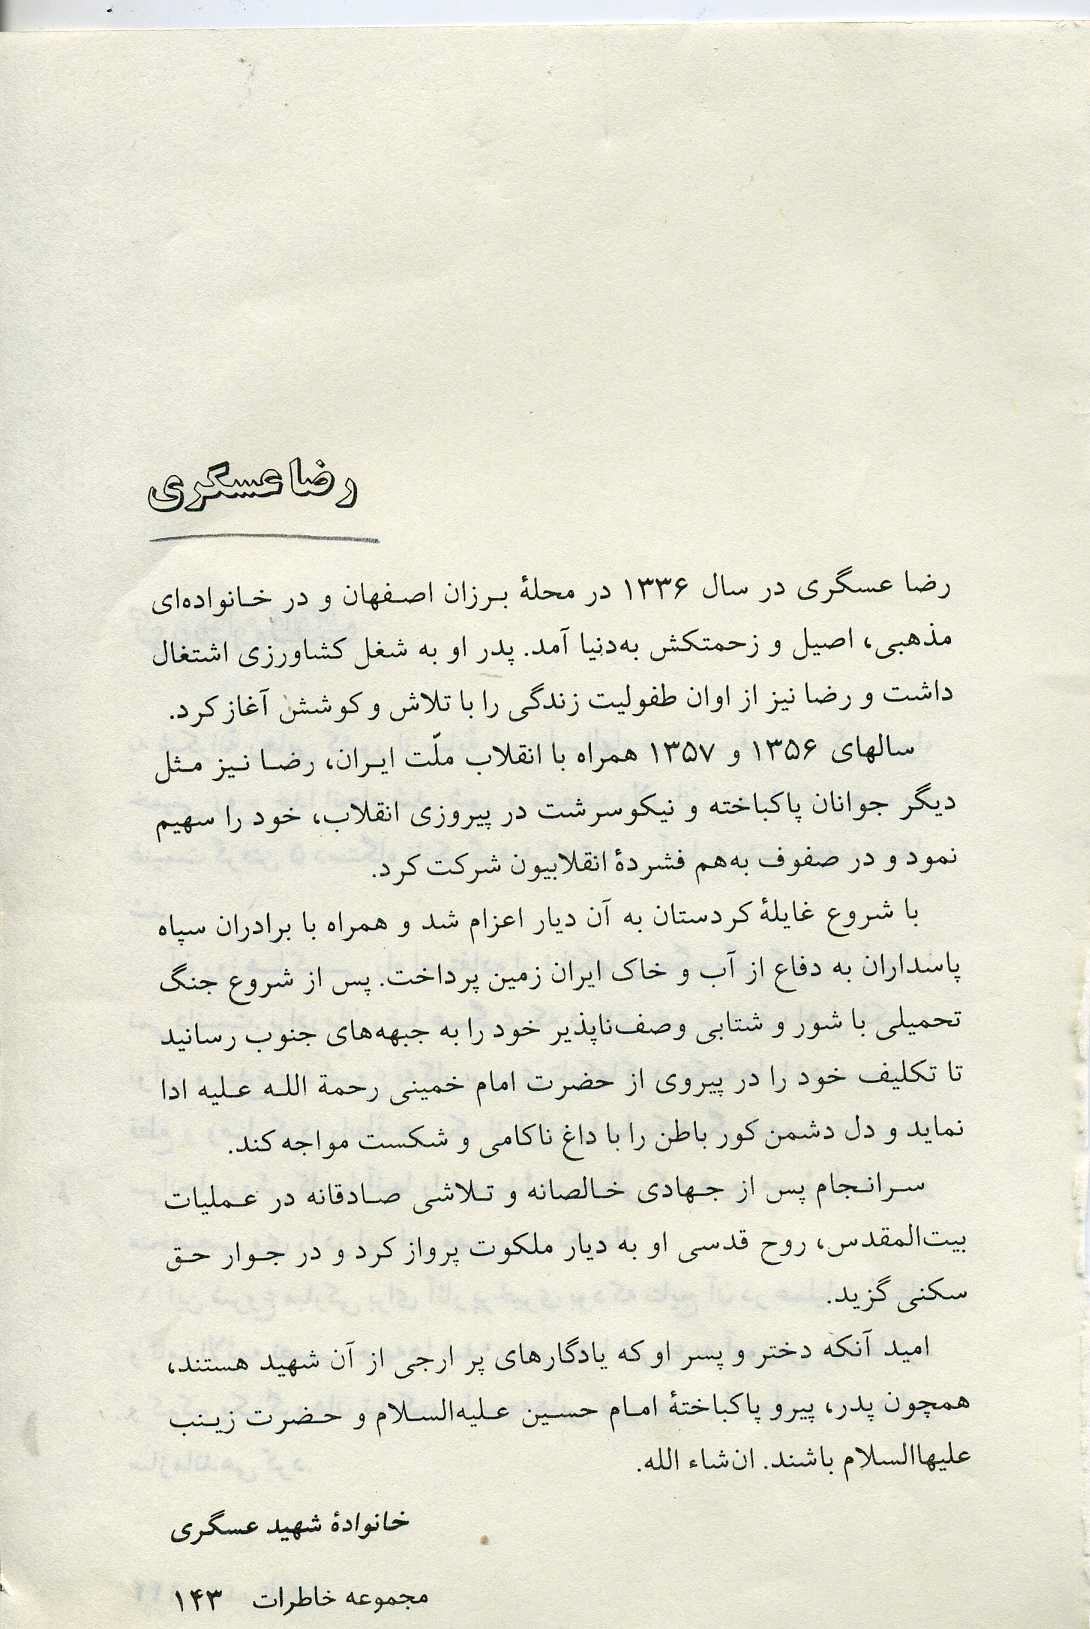 رضا عسگری
رضا عسگری در سال ۱۳۳۶ در محلهٔ برزان اصفهان و در خانواده‌ای
مذهبی، اصیل و زحمتکش به‌دنیا آمد. پدر او به شغل کشاورزی اشتغال
داشت و رضا نیز از اوان طفولیت زندگی را با تلاش و کوشش آغاز کرد.
سالهای ۱۳۵۶ و ۱۳۵۷ همراه با انقلاب ملّت ایران، رضا نیز مثل
دیگر جوانان پاکباخته و نیکوسرشت در پیروزی انقلاب، خود را سهیم
نمود و در صفوف به‌هم فشردهٔ انقلابیون شرکت کرد.
با شروع غایلهٔ کردستان به آن دیار اعزام شد و همراه با برادران سپاه
پاسداران به دفاع از آب و خاک ایران زمین پرداخت. پس از شروع جنگ
تحمیلی با شور و شتابی وصف‌ناپذیر خود را به جبهه‌های جنوب رسانید
تا تکلیف خود را در پیروی از حضرت امام خمینی رحمة الله علیه ادا
نماید و دل دشمن کور باطن را با داغ ناکامی و شکست مواجه کند.
سرانجام پس از جهادی خالصانه و تلاشی صادقانه در عملیات
بیت‌المقدس، روح قدسی او به دیار ملکوت پرواز کرد و در جوار حق
سکنی گزید.
امید آنکه دختر و پسر او که یادگارهای پر ارجی از آن شهید هستند،
همچون پدر، پیرو پاکباختهٔ امام حسین علیه‌السلام و حضرت زینب
علیهاالسلام باشند. ان‌شاء الله.
خانوادهٔ شهید عسگری
مجموعه خاطرات ۱۴۳